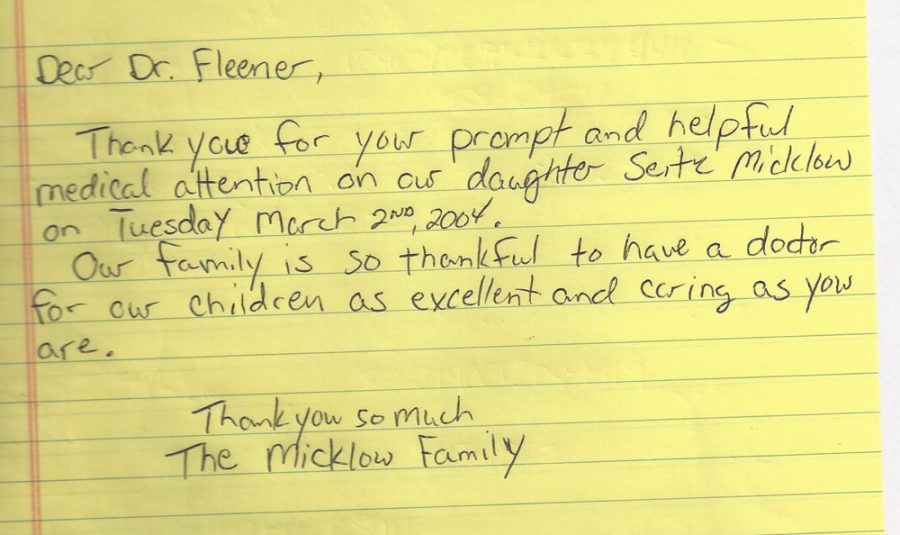 Dear Dr. Fleener,
Thank you for your prompt and helpful
medical attention on our daughter Micklow
on Tuesday March 2ND, 2004.
Our family is so thankful to have a doctor
for our children as excellent and caring as you
are.
Thank you so much
The Micklow Family